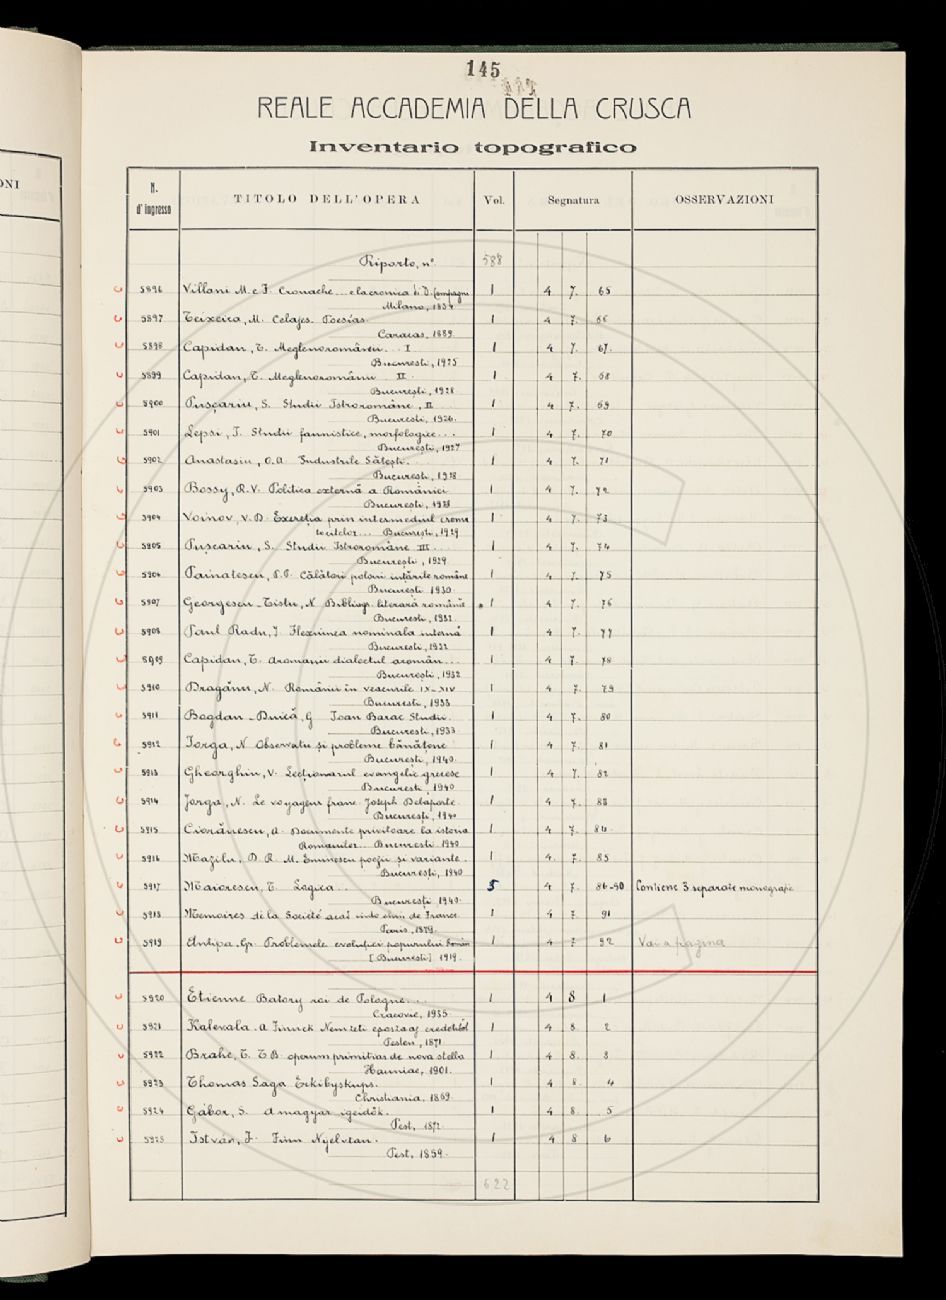 145
REALE ACCADEMIA DELLA CRUSCA
Inventario topografico
ONI
N. d'ingresso TITOLO DELL'OPERA Vol. Segnatura OSSERVAZIONI
Riporto, n°. 588
5896 Villani M. e F. Cronache... e la cronica di D. Compagni 1 4 7. 65
Milano, 1834
5897 Teixeira, M. Celajes. Poesías. 1 4 7. 66
Caracas, 1889.
5898 Capidan, T. Meglenoromânii ... I 1 4 7. 67.
Bucuresti, 1925
5899 Capidan, T. Meglenoromânii II. 1 4 7. 68
Bucureşti, 1928
5900 Puşcariu, S. Studii Istroromâne, II 1 4 7. 69
Bucuresti, 1926.
5901 Lepsi, I. Studii faunistice, morfologice... 1 4 7. 70
Bucureşti, 1927
5902 Anastasiu, O.A. Industriile Săteşti. 1 4 7. 71
Bucureşti, 1928
5903 Bossy, R.V. Politica externă a României 1 4 7. 72
Bucureşti, 1928
5904 Voinov, V. D. Excreţia prin intermediul croma 1 4 7. 73
tocitelor... Bucureşti, 1929
5905 Puşcariu, S. Studii Istroromâne III... 1 4 7. 74
Bucureşti, 1929
5906 P.P. Călători poloni în ţările române 1 4 7. 75
Bucuresti 1930.
5907 Georgescu-Tistu, N. Bibliogr. literară română 1 4 7. 76
Bucuresti, 1932.
5908 Paul Radu, I. Flexiunea nominala internă 1 4 7. 77
Bucuresti, 1932
5909 Capidan, T. Aromanii dialectul aromân... 1 4 7. 78
Bucureşti, 1932
5910 Draganu, N. Românii în veacurile IX-XIV 1 4 7. 79
Bucuresti, 1933
5911 Bogdan-Duică, G. Ioan Barac Studiu. 1 4 7. 80
Bucuresti, 1933
5912 Iorga, N. Observatii şi probleme bănăţene 1 4 7. 81
Bucureşti, 1940.
5913 Gheorghiu, V. Lecţionarul evangelic grecesc 1 4 7. 82
Bucuresti, 1940
5914 Jorga, N. Le voyageur franc. Joseph Delaporte. 1 4 7. 83
Bucureşti, 1940
5915 Cioránescu, A. Documente privitoare la istoria 1 4 7. 84.
Romanilor... Bucuresti 1940
5916 Mazilu, D. R. M. Eminescu poezii şi variante. 1 4. 7. 85
Bucureşti, 1940
5917 Maiorescu, T. Logica... 5 4 7. 86-90 Contiene 3 separate monografie
Bucureşti 1940.
5918 Memoires de la Société acad. indo chin. de France. 1 4 7 91
Paris, 1879.
5919 Antipa, Gr. Problemele evoluţiei poporului Român 1 4 7 92 Va a pagina
[Bucuresti] 1919.
5920 Étienne Batory roi de Pologne... 1 4 8 1
Cracovie, 1935.
5921 Kalevala. A Finnek Nemzeti eposza az eredetiből 1 4 8. 2
Pesten, 1871
5922 Brahe, T. T.B. operum primitias de nova stella 1 4 8. 3
Hauniae, 1901.
5923 Thomas Saga Erkibyskups. 1 4 8. 4
Christiania, 1869.
5924 Gábor, S. A magyar igeidők. 1 4 8. 5
Pest, 1872.
5925 István, F. Finn Nyelvtan. 1 4 8 6
Pest, 1859.
622